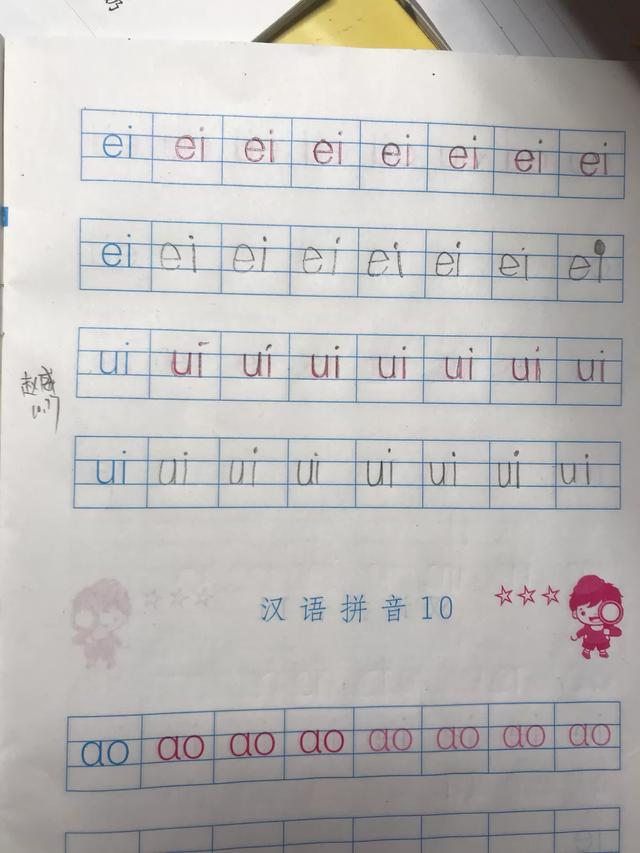 ei ei ei ei ei ei ei ei
ei ei ei ei ei ei ei ei
ui ui ui ui ui ui ui ui
ui ui ui ui ui ui ui ui
汉语拼音10
ao ao ao ao ao ao ao ao